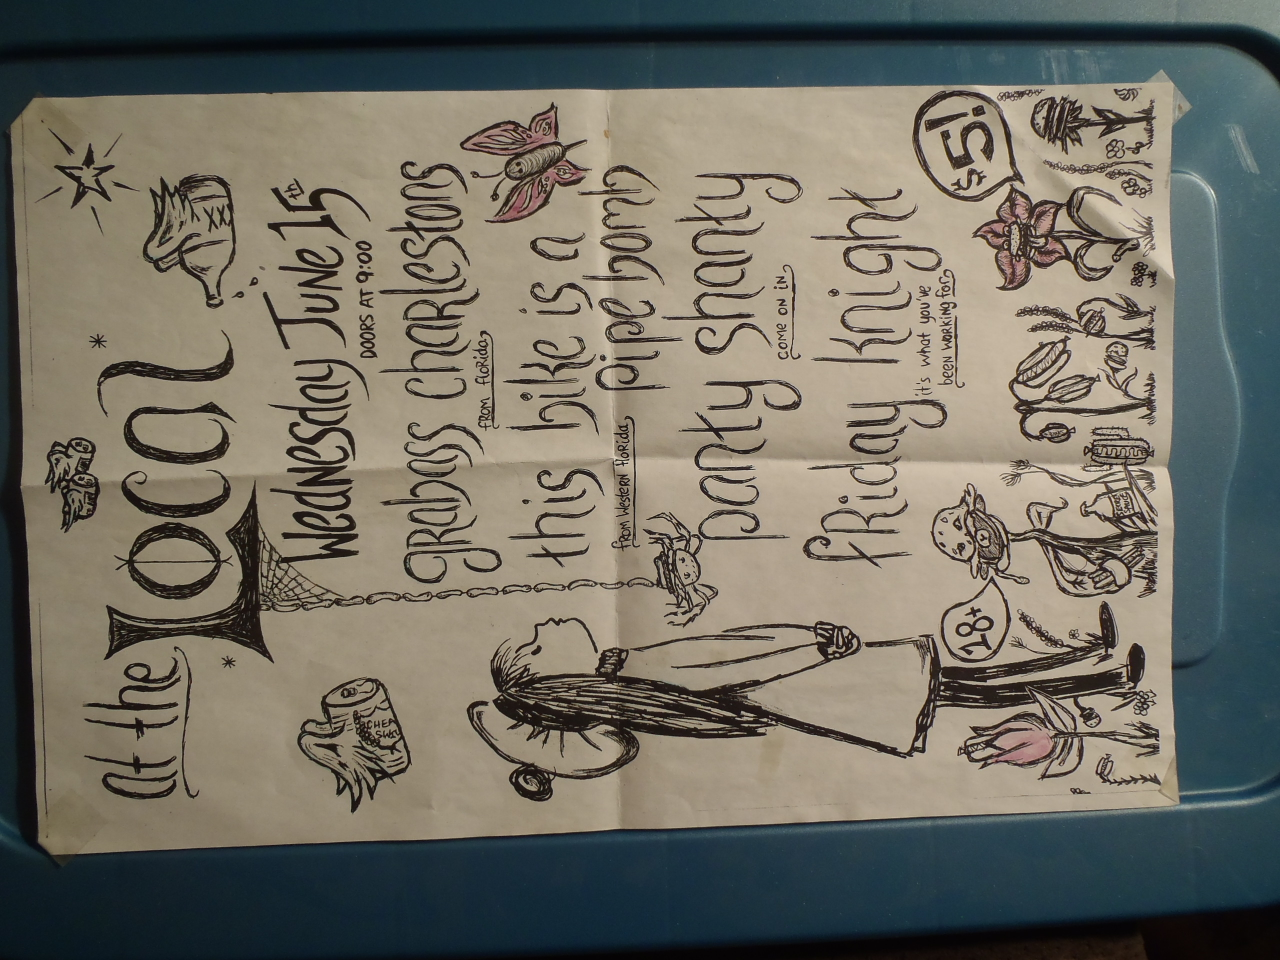 at the Local
XX
Wednesday June 15th
DOORS AT 9:00
grabass charlestons
from florida
this bike is a
pipe bomb
from Western florida
panty shanty
COME ON IN
friday knight
it's what you've
been working for
$5!
18+